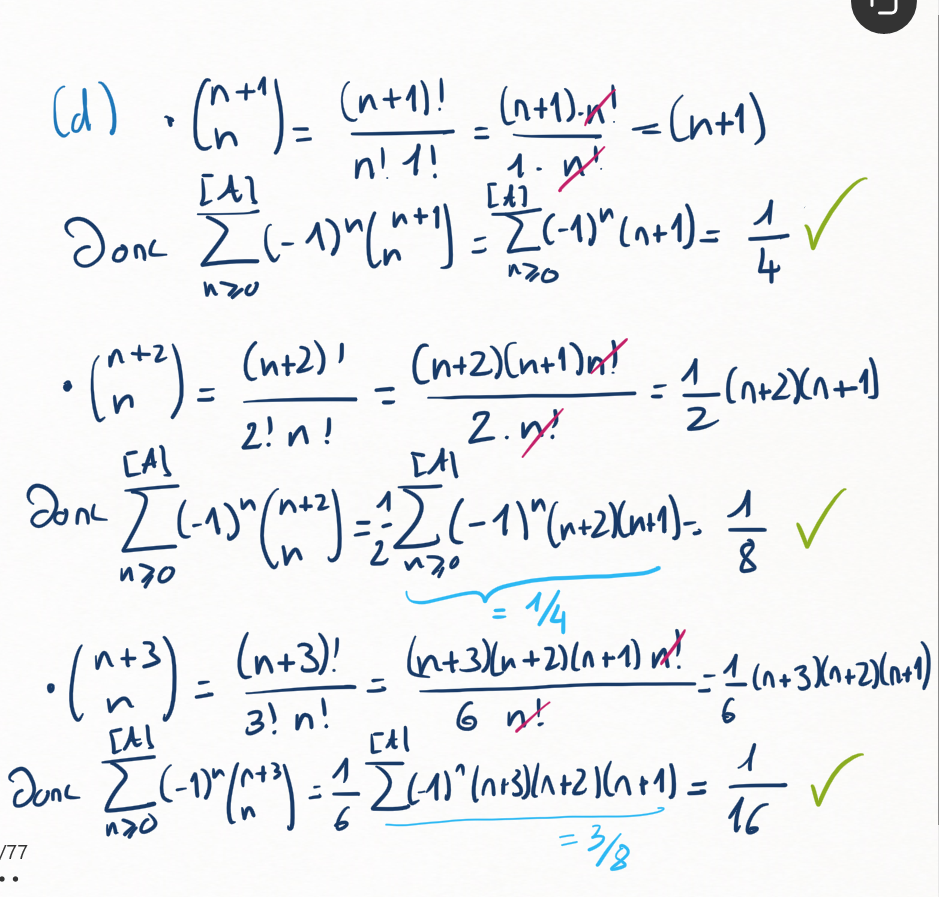 (d) · (n+1 n) = (n+1)! / n! 1! = (n+1)·n! / 1·n! = (n+1)
Donc [A]∑n≥0 (-1)^n (n+1 n) = [A]∑n≥0 (-1)^n (n+1) = 1/4 ✓
· (n+2 n) = (n+2)! / 2! n! = (n+2)(n+1)n! / 2·n! = 1/2 (n+2)(n+1)
Donc [A]∑n≥0 (-1)^n (n+2 n) = 1/2 [A]∑n≥0 (-1)^n (n+2)(n+1) = 1/8 ✓
= 1/4
· (n+3 n) = (n+3)! / 3! n! = (n+3)(n+2)(n+1) n! / 6 n! = 1/6 (n+3)(n+2)(n+1)
Donc [A]∑n≥0 (-1)^n (n+3 n) = 1/6 [A]∑n≥0 (-1)^n (n+3)(n+2)(n+1) = 1/16 ✓
= 3/8
/77